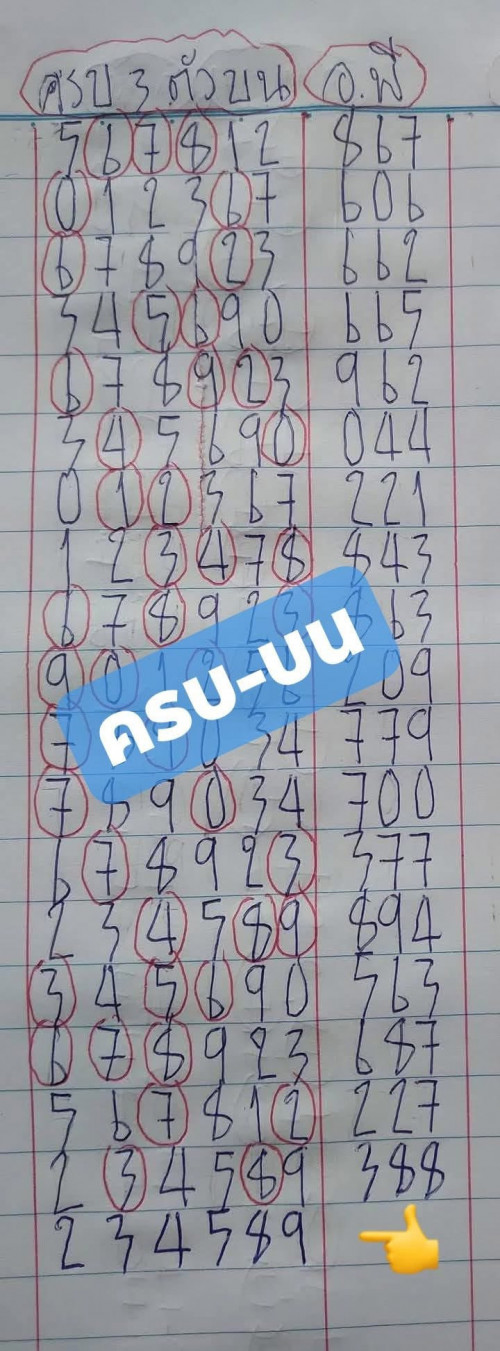 ครบ 3 ตัวบน อ.พี
567812 867
012367 606
678923 662
345690 665
678923 962
345690 044
012367 221
123478 843
678923 863
ครบ-บน
209
34 779
789034 700
678923 377
234589 894
345690 563
678923 687
567812 227
234589 388
234589